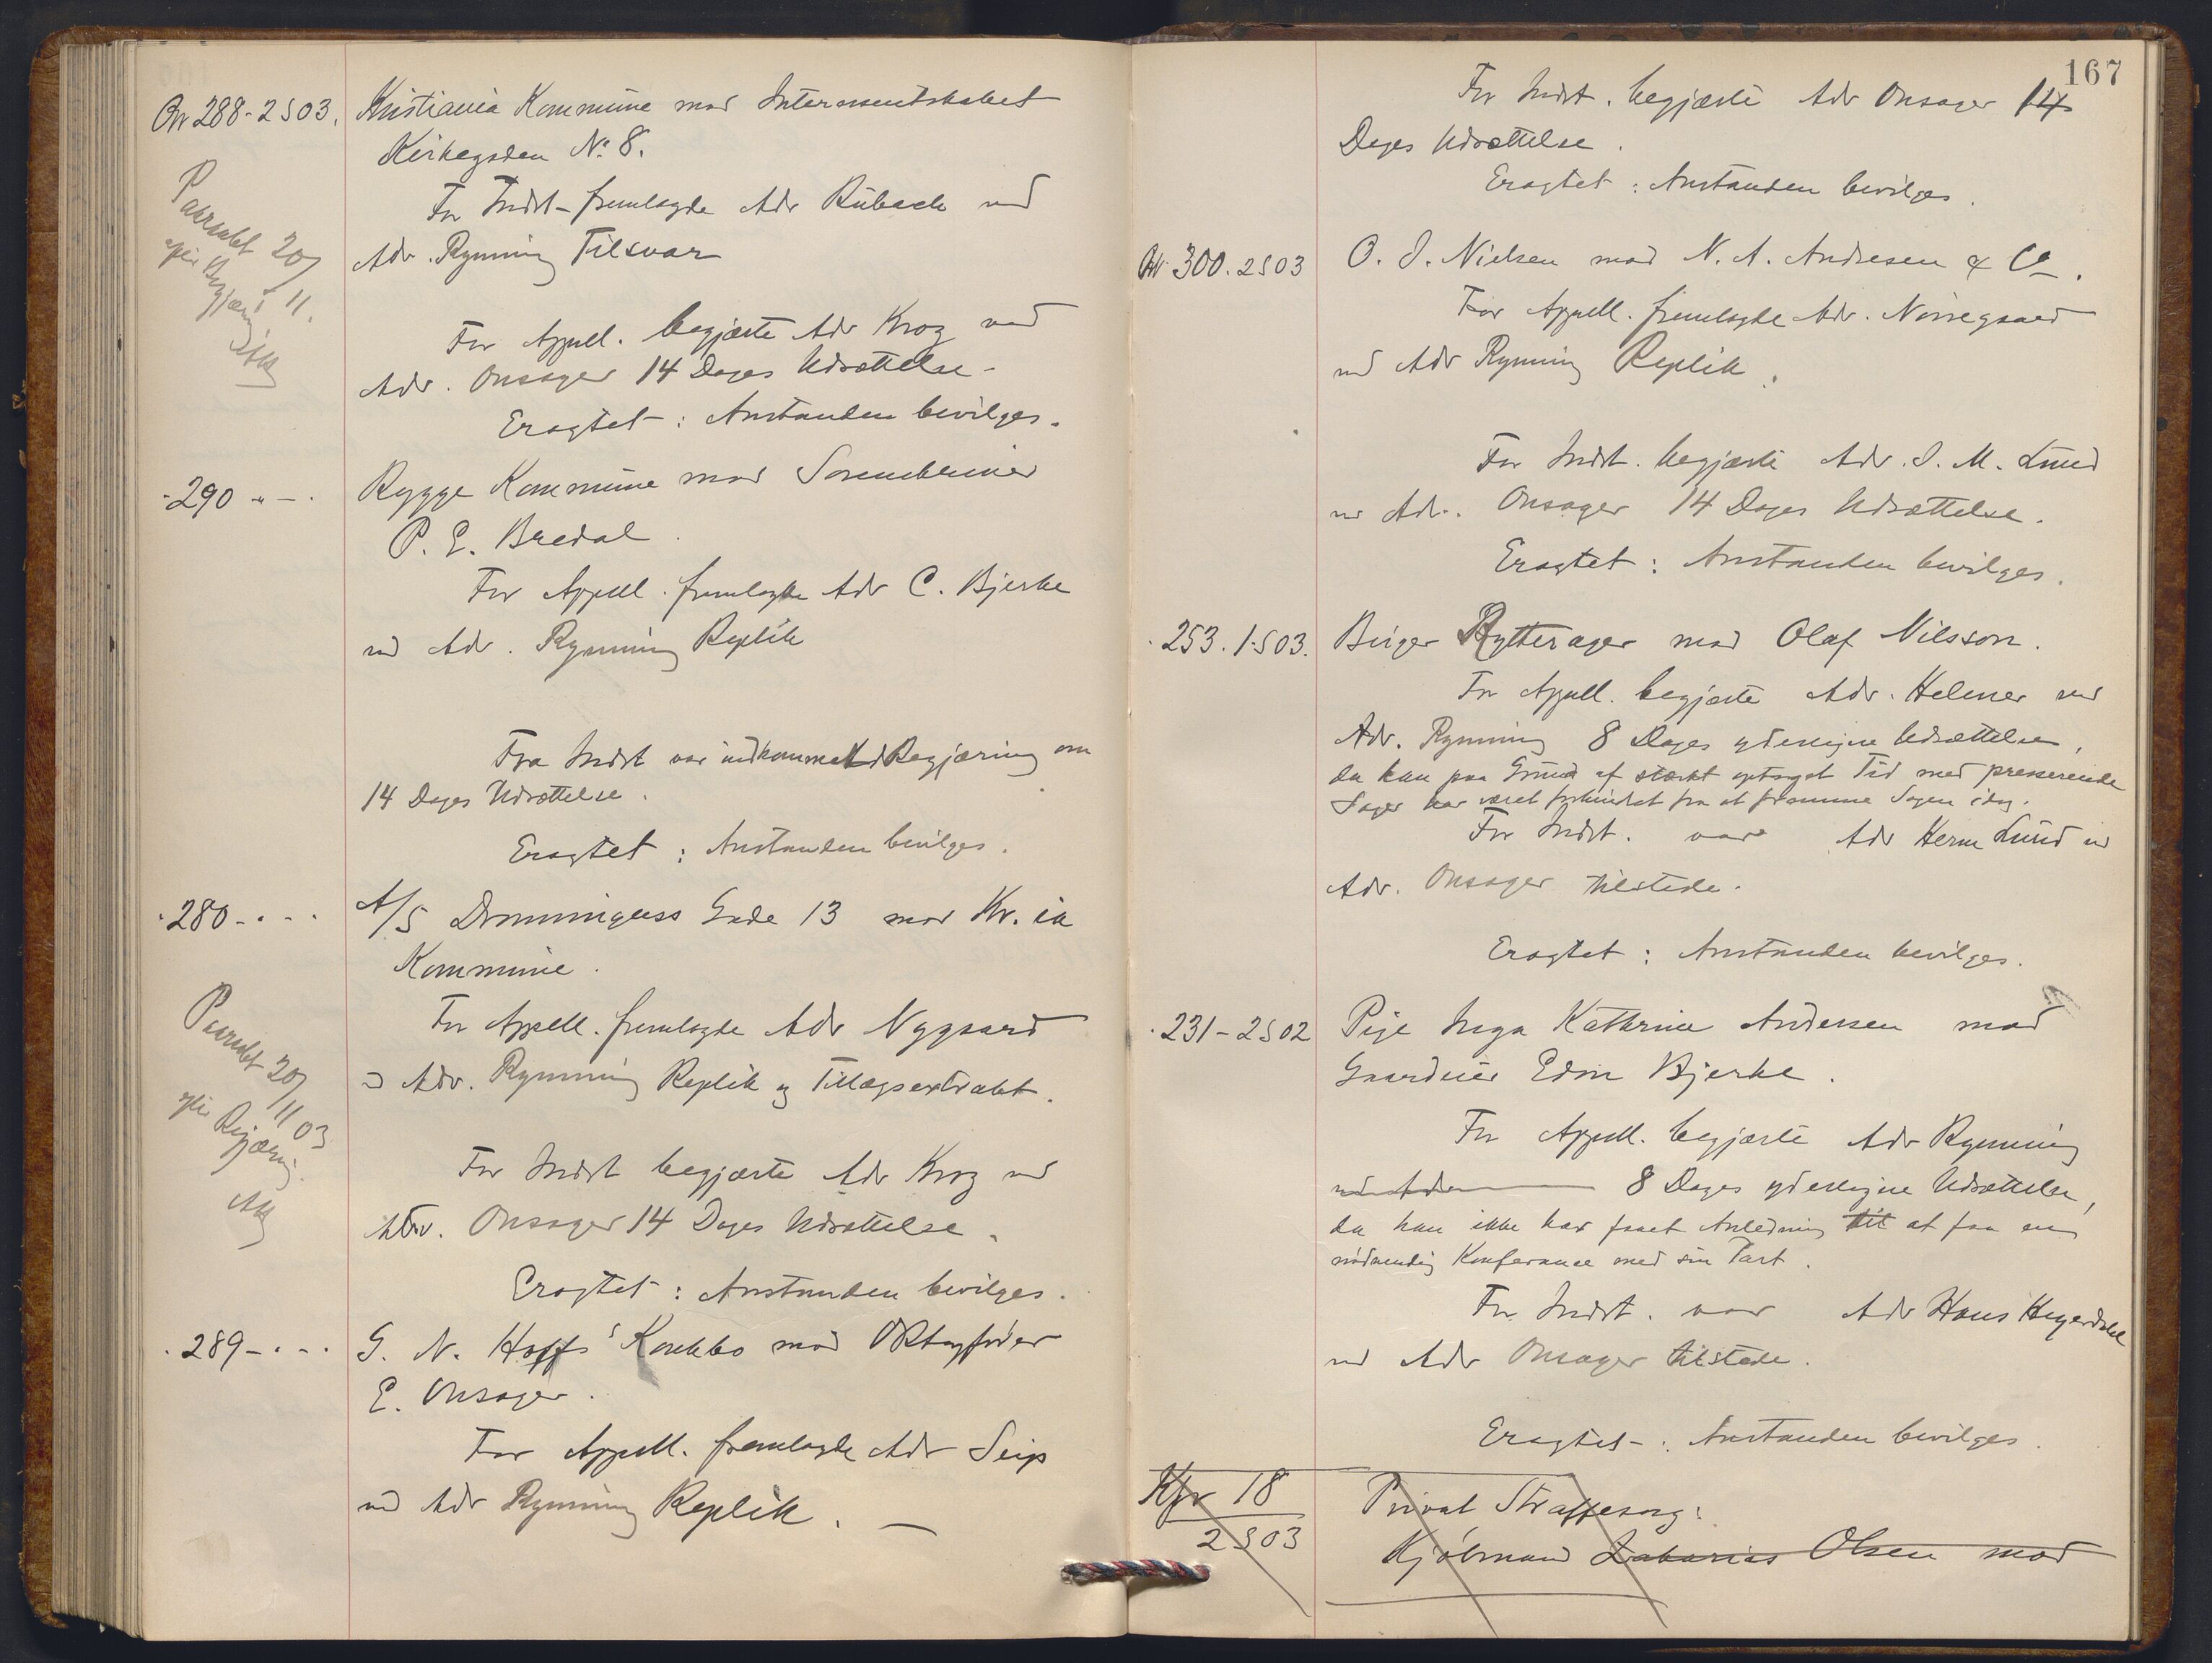 Bv 288-2S03.
Kristiania Kommune mod Interessentskabet
Kirkegaden No 8.
For Indst. fremlagde Adv Rubach ved
Adv. Rynning Tilsvar
Paaankt 20/11.
efter Begjæring
For Appell. begjærte Adv Krog ved
Adv. Onsager 14 Dages Udsættelse.
Eragtet: Anstanden bevilges.
-290 " - .
Rygge Kommune mod Sorenskriver
P. E. Bredal.
For Appell. fremlagde Adv C. Bjerke
ved Adv. Rynning Replik
Fra Indst var indkommet Begjæring om
14 Dages Udsættelse.
Eragtet: Anstanden bevilges.
-280 - . - .
A/S Dronningens Gade 13 mod Kr.ia
Kommune.
For Appell. fremlagde Adv Nygaard
ved Adv. Rynning Replik og Tillægsextrakt.
20/11 03
efter Begjæring
For Indst begjærte Adv Krog ved
Adv. Onsager 14 Dages Udsættelse.
Eragtet: Anstanden bevilges.
. 289 - . - .
G. N. Hoffs Konkbo mod
E. Onsager.
For Appell. fremlagde Adv Seip
ved Adv Rynning Replik. —
167
For Indst. begjærte Adv Onsager 14
Dages Udsættelse.
Eragtet: Anstanden bevilges.
Bv 300. 2S03
O. J. Nielsen mod N. A. Andresen & Co.
For Appell. fremlagde Adv. Nørregaard
ved Adv Rynning Replik.
For Indst. begjærte Adv. J. M. Lund
ved Adv. Onsager 14 Dages Udsættelse.
Eragtet: Anstanden bevilges.
. 253. 1.S03.
Birger Rytterager mod Olaf Nilsson.
For Appell. begjærte Adv. Helmer ved
Adv. Rynning 8 Dages yderligere Udsættelse,
da han paa Grund af stærkt optaget Tid med presserende
Sager har været forhindret fra at fremme Sagen idag.
For Indst. var Adv Herm Lund ved
Adv. Onsager tilstede.
Eragtet: Anstanden bevilges.
. 231 - 2S02
Pige Inga Kathrine Andersen mod
Gaardeier Edvin Bjerke.
For Appell. begjærte Adv Rynning
ved Adv 8 Dages yderligere Udsættelse,
da han ikke har faaet Anledning til at faa en
nødvendig Konferance med sin Part.
For Indst. var Adv Hans Heyerdahl
ved Adv Onsager tilstede.
Eragtet: Anstanden bevilges.
Kfr 18
2S03
Privat Straffesag:
Kjøbmand Zakarias Olsen mod